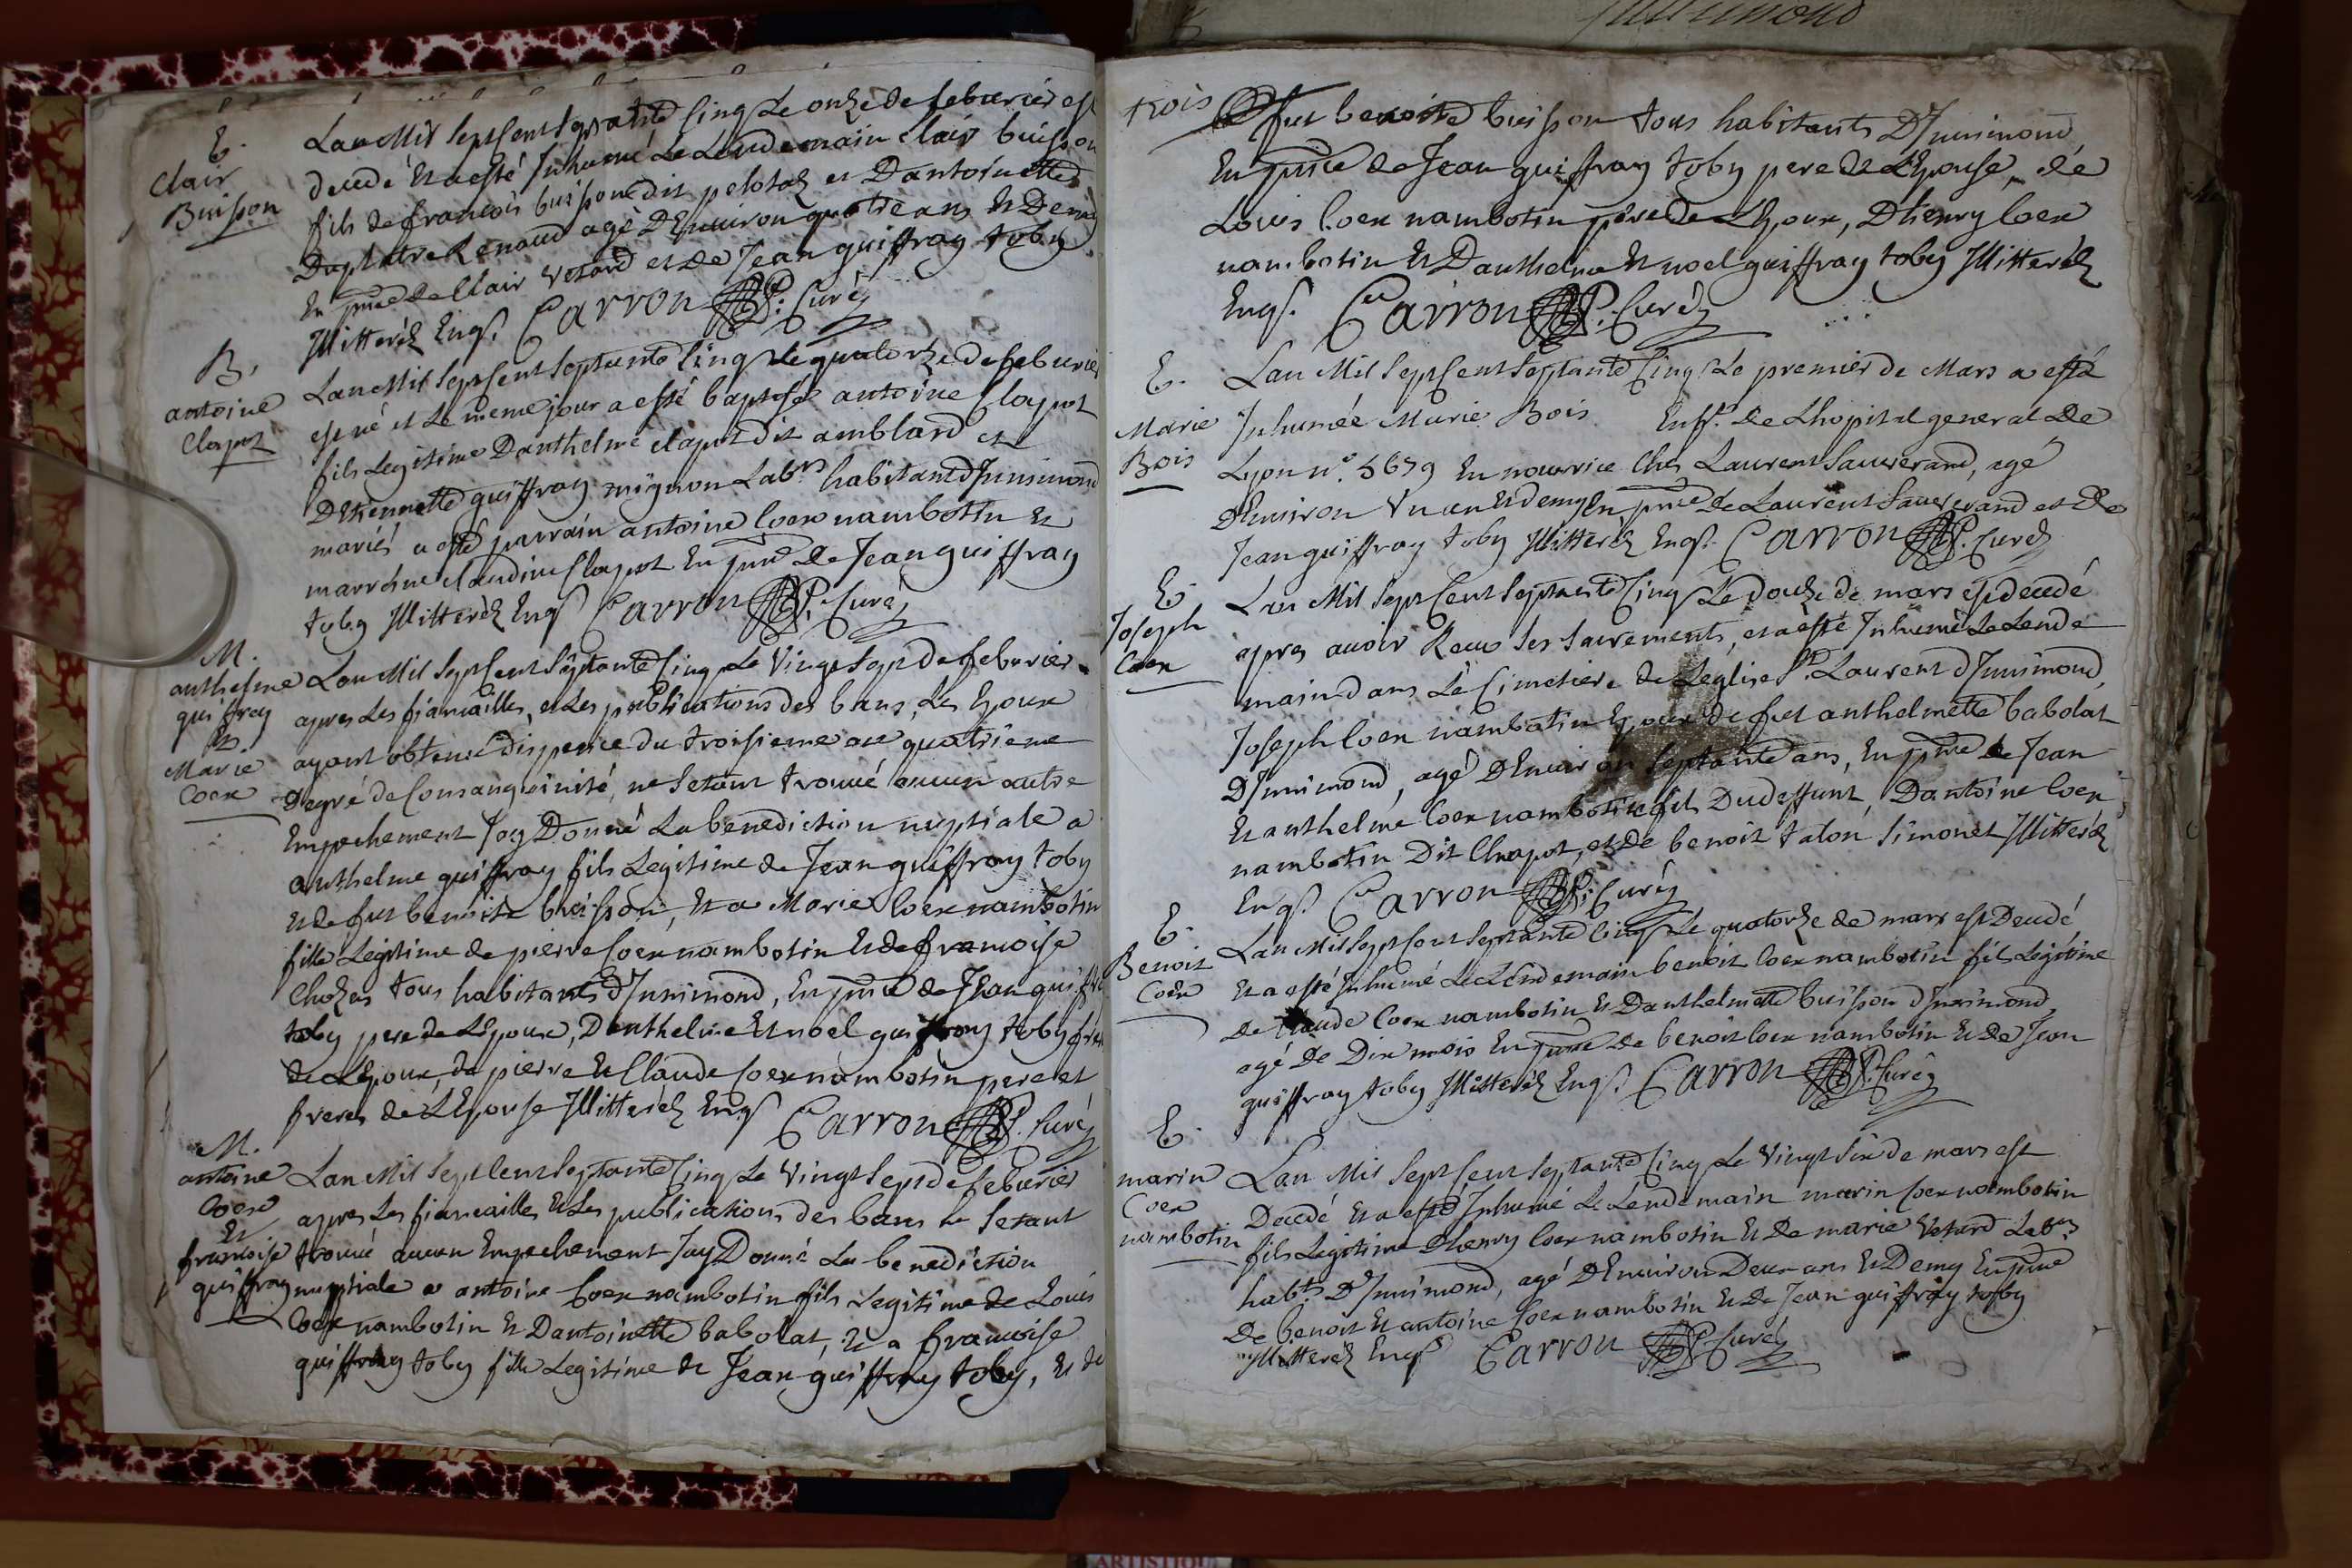 E.
Clair
Buisson
Lan Mil Sept Cent Septante Cinq Le onze de feburier est
decedé et a esté Inhumé Le Lendemain Clair buisson
fils de francois buisson dit pelotaz et Dantoinette
Duplatre Renaud agé D'Environ quatre ans et Demy
En pnce de Clair Vetard et de Jean guiffray toby
Illitteréz Enqs. Carron Curéz
B.
antoine
Clapot
Lan Mil Sept Cent Septante Cinq Le quatorze de feburier
est né et Le meme jour a esté baptisé antoine Clapot
fils Legitime Danthelme clapot dit amblard et
DEtiennette guiffray mignon Labrs habitant d'Innimond
mariés a esté parrain antoine Coex nambotin et
marrene claudine Clapot En pnce De Jean guiffray
toby Illitteréz Enqs Carron Curéz
M.
anthelme
guiffray
Et
Marie
Coex
Lan Mil Sept Cent Septante Cinq Le Vingt Sept de feburier
apres Les fiancailles, et Les publications des bans, Les Epoux
ayant obtenu dispence du troisieme au quatrieme
Degré de Consanguinité, ne Setant trouvé aucun autre
Empechement Jay Donné La benediction nuptiale a
anthelme guiffray fils Legitime de Jean guiffray toby
et de fut benoite buisson, et a Marie Coex nambotin
fille Legitime de pierre Coex nambotin et de francoise
Chozas tous habitants d'Innimond, En pnce de Jean guiffray
toby pere de L'Epoux, Danthelme et noel guiffray toby freres
de L'Epoux, de pierre et Claude Coex nambotin pere et
freres de L'Epouse Illitteréz Enqs Carron Curéz
M.
antoine
Coex
Et
francoise
guiffray
Lan Mil Sept Cent Septante Cinq Le Vingt Sept de feburier
apres Les fiancailles et Les publications des bans ne Setant
trouvé aucun Empechement Jay Donné La benediction
nuptiale a antoine Coex nambotin fils Legitime de Louis
Coex nambotin et Dantoinette babolat, et a francoise
guiffray toby fille Legitime de Jean guiffray toby, et de
trois
fut benoite buisson tous habitants D'Innimond
En pnce de Jean guiffray toby pere de L'Epouse, de
Louis Coex nambotin pere de L'Epoux, D'henry Coex
nambotin et Danthelme et noel guiffray toby Illitteréz
Enqs. Carron Curéz
E.
Marie
Bois
Lan Mil Sept Cent Septante Cinq Le premier de Mars a esté
Inhumée Marie Bois Enft. de Lhopital general de
Lyon n°. 5659 En nourrice Chez Laurent Sauverand, agé
D'Environ Un an et demy En pnce de Laurent Sauverand et de
Jean guiffray toby Illitteréz Enqs. Carron Curéz
E.
Joseph
Coex
Lan Mil Sept Cent Septante Cinq Le douze de mars est decedé
apres avoir Receu Ses Sacrements, et a esté Inhumé Le Lende
main dans Le Cimetiere de Leglise St. Laurent d'Innimond,
Joseph Coex nambotin Epoux de fut anthelmette babolat
D'Innimond, agé D'Environ Septante ans, En pnce de Jean
et anthelme Coex nambotin fils Dudeffunt, Dantoine Coex
nambotin Dit Chapot, et de benoit talon Simonet Illitteréz
Enqs. Carron Curéz
E.
Benoit
Coex
Lan Mil Sept Cent Septante Cinq Le quatorze de mars est Decedé
et a esté Inhumé Le Lendemain benoit Coex nambotin fils Legitime
de Claude Coex nambotin et Danthelmette buisson d'Innimond,
agé de Dix mois En pnce de benoit Coex nambotin et de Jean
guiffray toby Illitteréz Enqs Carron Curéz
E.
marin
Coex
nambotin
Lan Mil Sept Cent Septante Cinq Le Vingt Six de mars est
Decedé et a esté Inhumé Le Lendemain marin Coex nambotin
fils Legitime D'henry Coex nambotin et de marie Vetard Labrs
habts. D'Innimond, agé D'Environ Deux ans et Demy En pnce
De benoit et antoine Coex nambotin et de Jean guiffray toby
Illitteréz Enqs Carron Curéz
ARTISTIQUE